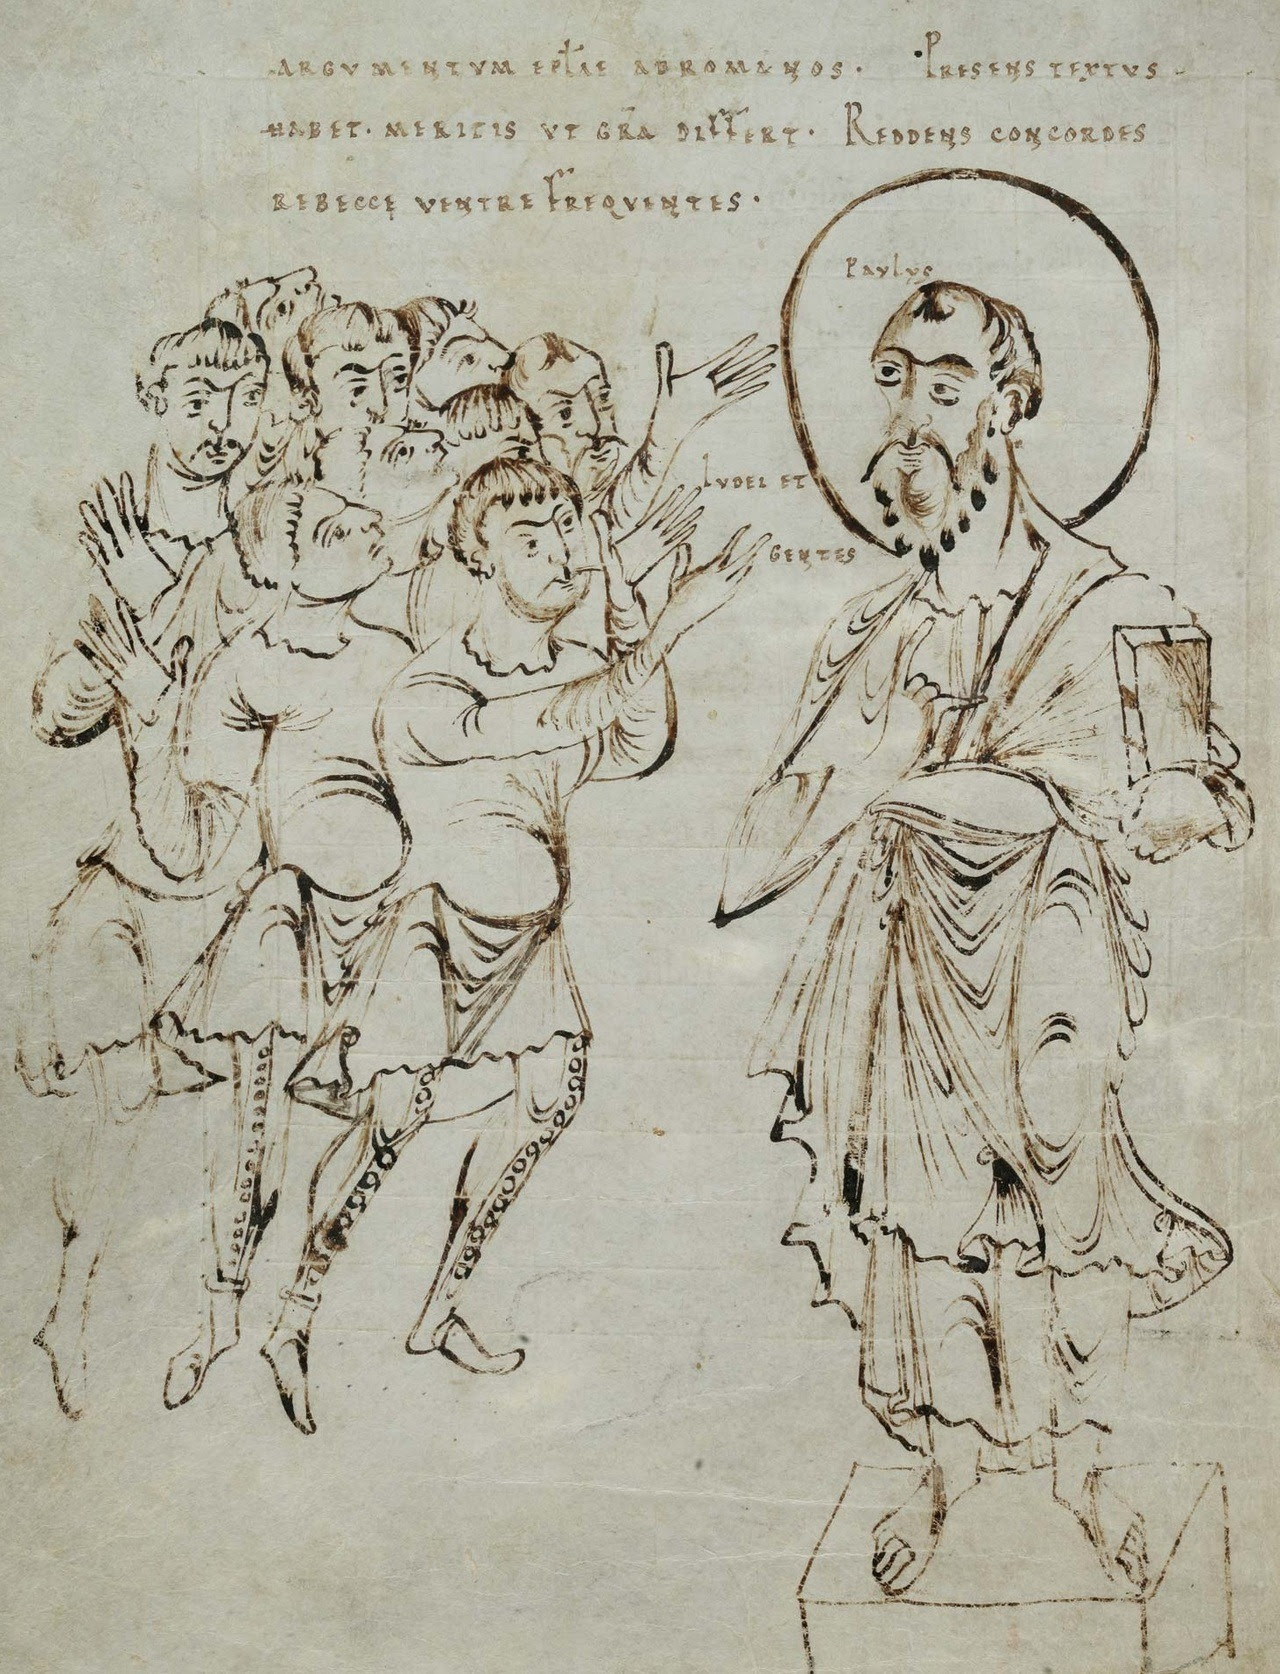 ARGVMENTVM EPLAE ADROMANOS · PRESENS TEXTVS
HABET · MERITIS VT GRA DISSERT · REDDENS CONCORDES
REBECCE VENTRE FREQVENTES ·
PAVLVS
IVDEI ET
GENTES